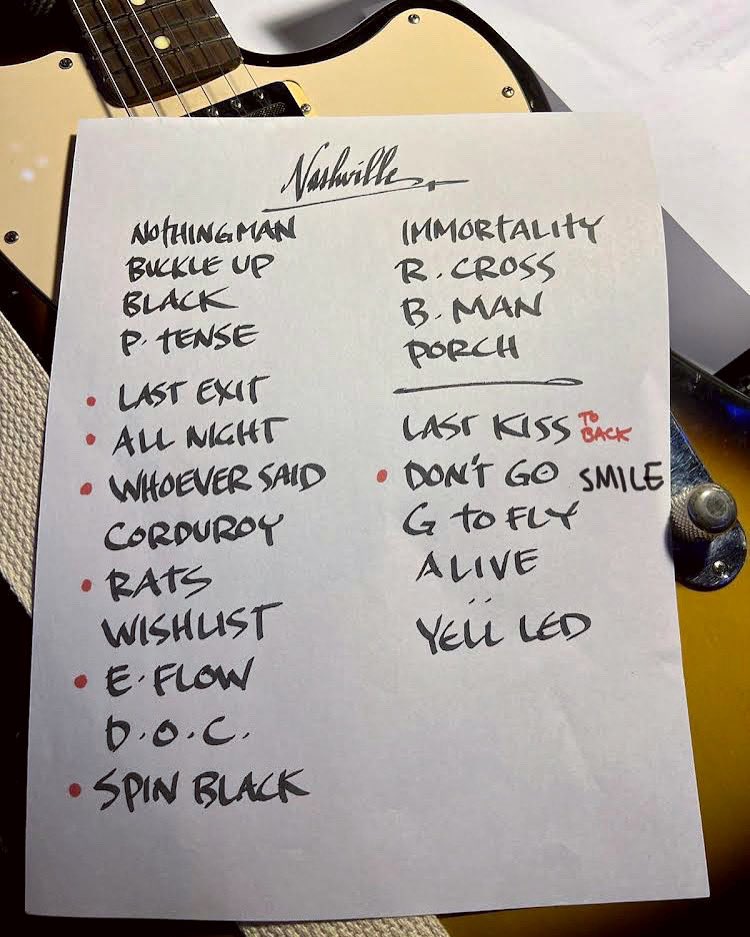 Nashville
NOTHINGMAN
BUCKLE UP
BLACK
P. TENSE
• LAST EXIT
• ALL NIGHT
• WHOEVER SAID
CORDUROY
• RATS
WISHLIST
• E. FLOW
D.O.C.
• SPIN BLACK
IMMORTALITY
R. CROSS
B. MAN
PORCH
LAST KISS TO BACK
• DON'T GO SMILE
G TO FLY
ALIVE
YELL LED